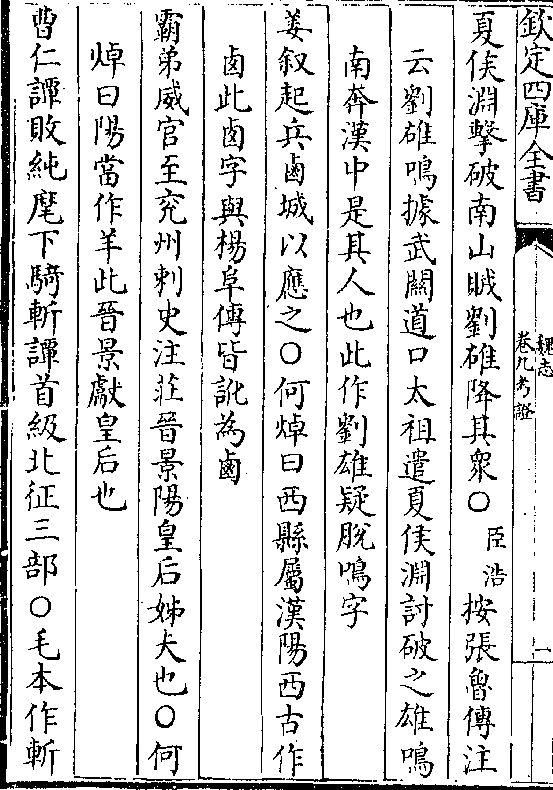 欽定四庫全書
魏志
卷九考證
二
夏侯淵擊破南山賊劉雄降其衆○臣浩按張魯傳注
云劉雄鳴據武關道口太祖遣夏侯淵討破之雄鳴
南奔漢中是其人也此作劉雄疑脫鳴字
姜叙起兵鹵城以應之○何焯曰西縣屬漢陽西古作
卤此卤字與楊阜傳皆訛為鹵
霸弟威官至兖州刺史注莊晉景陽皇后姊夫也○何
焯曰陽當作羊此晉景獻皇后也
曹仁譚敗純麾下騎斬譚首級北征三部○毛本作斬